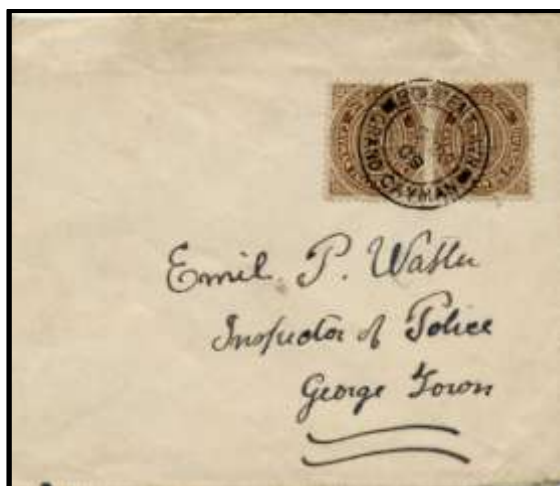 GRAND CAYMAN
Emil. P. Watler
Inspector of Police
George Town